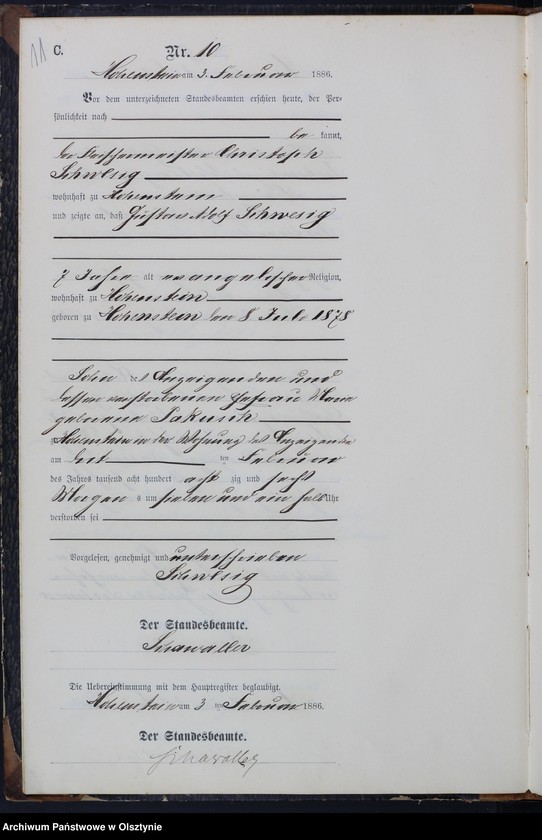 11 C. Nr. 10
Hohenstein am 3. Februar 1886.
Vor dem unterzeichneten Standesbeamten erschien heute, der Per-
sönlichkeit nach
be kannt,
der Fleischermeister Christoph
Schwesig
wohnhaft zu Hohenstein
und zeigte an, daß Gustav Adolf Schwesig
7 Jahre alt evangelischer Religion,
wohnhaft zu Hohenstein
geboren zu Hohenstein den 8. Juli 1878
Sohn des Anzeigenden und
dessen verstorbenen Ehefrau Marie
geborene
zu Hohenstein in der Wohnung des Anzeigenden
am ten Februar
des Jahres tausend acht hundert achtzig und sechs
Morgens um sieben und ein halb Uhr
verstorben sei
Vorgelesen, genehmigt und unterschrieben
Schwesig
Der Standesbeamte.
Schawaller
Die Uebereinstimmung mit dem Hauptregister beglaubigt.
Hohenstein am 3 ten Februar 1886.
Der Standesbeamte.
Schawaller
Archiwum Państwowe w Olsztynie